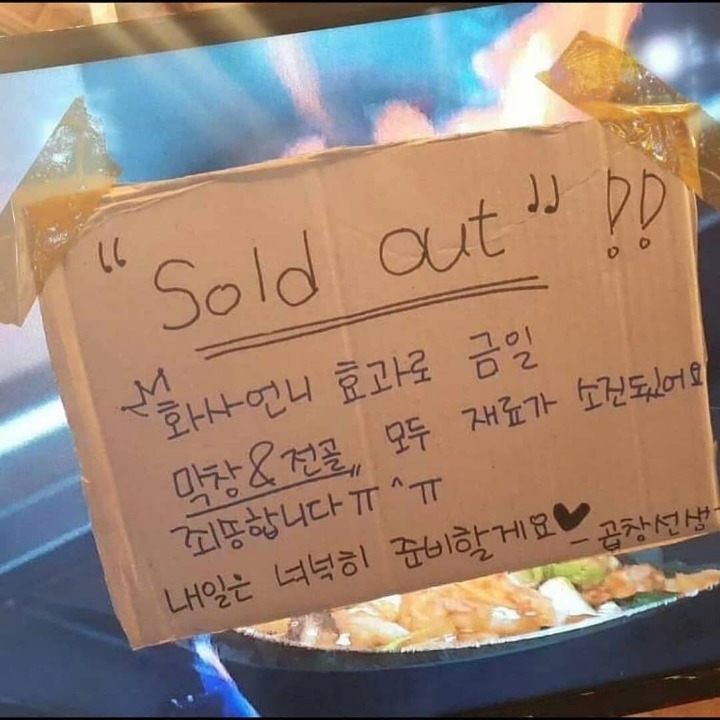 “Sold out” !!
화사언니 효과로 금일
막창&전골 모두 재료가 소진됬어요
죄뚕합니다ㅠ^ㅠ
내일은 넉넉히 준비할게요♥ – 곱창선생